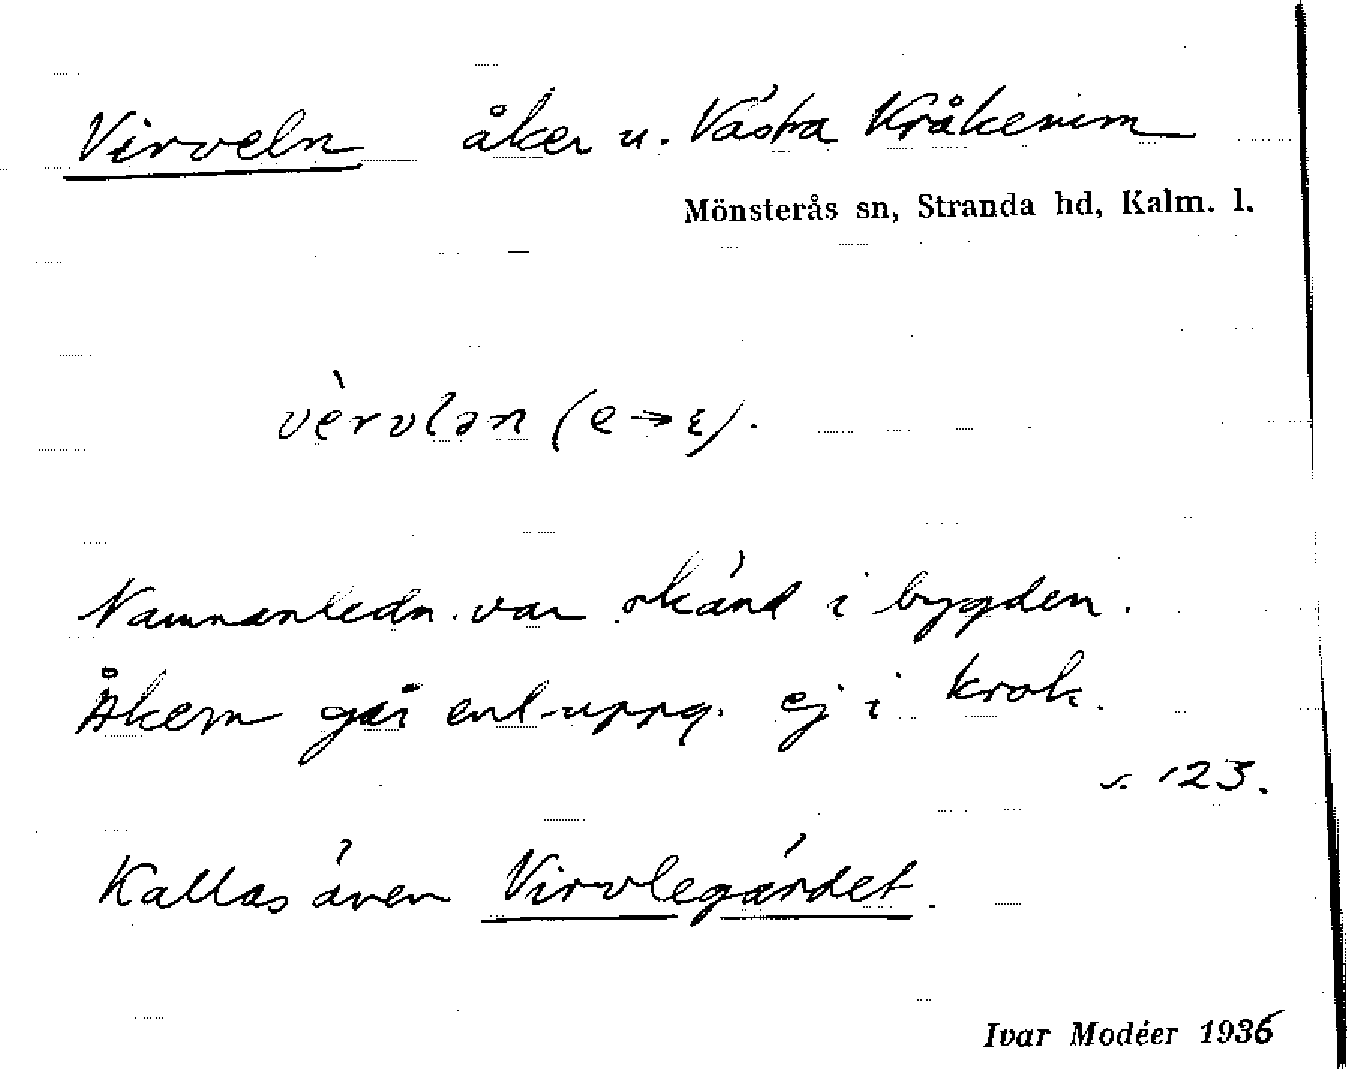 Virveln åker u. Västra Kråkerum
Mönsterås sn, Stranda hd, Kalm. l.
vèrvlən (e → ε).
Namnanledn. var okänd i bygden.
Åkern går enl. uppg. ej i krok.
s. 123.
Kallas även Virvlegärdet.
Ivar Modéer 1936